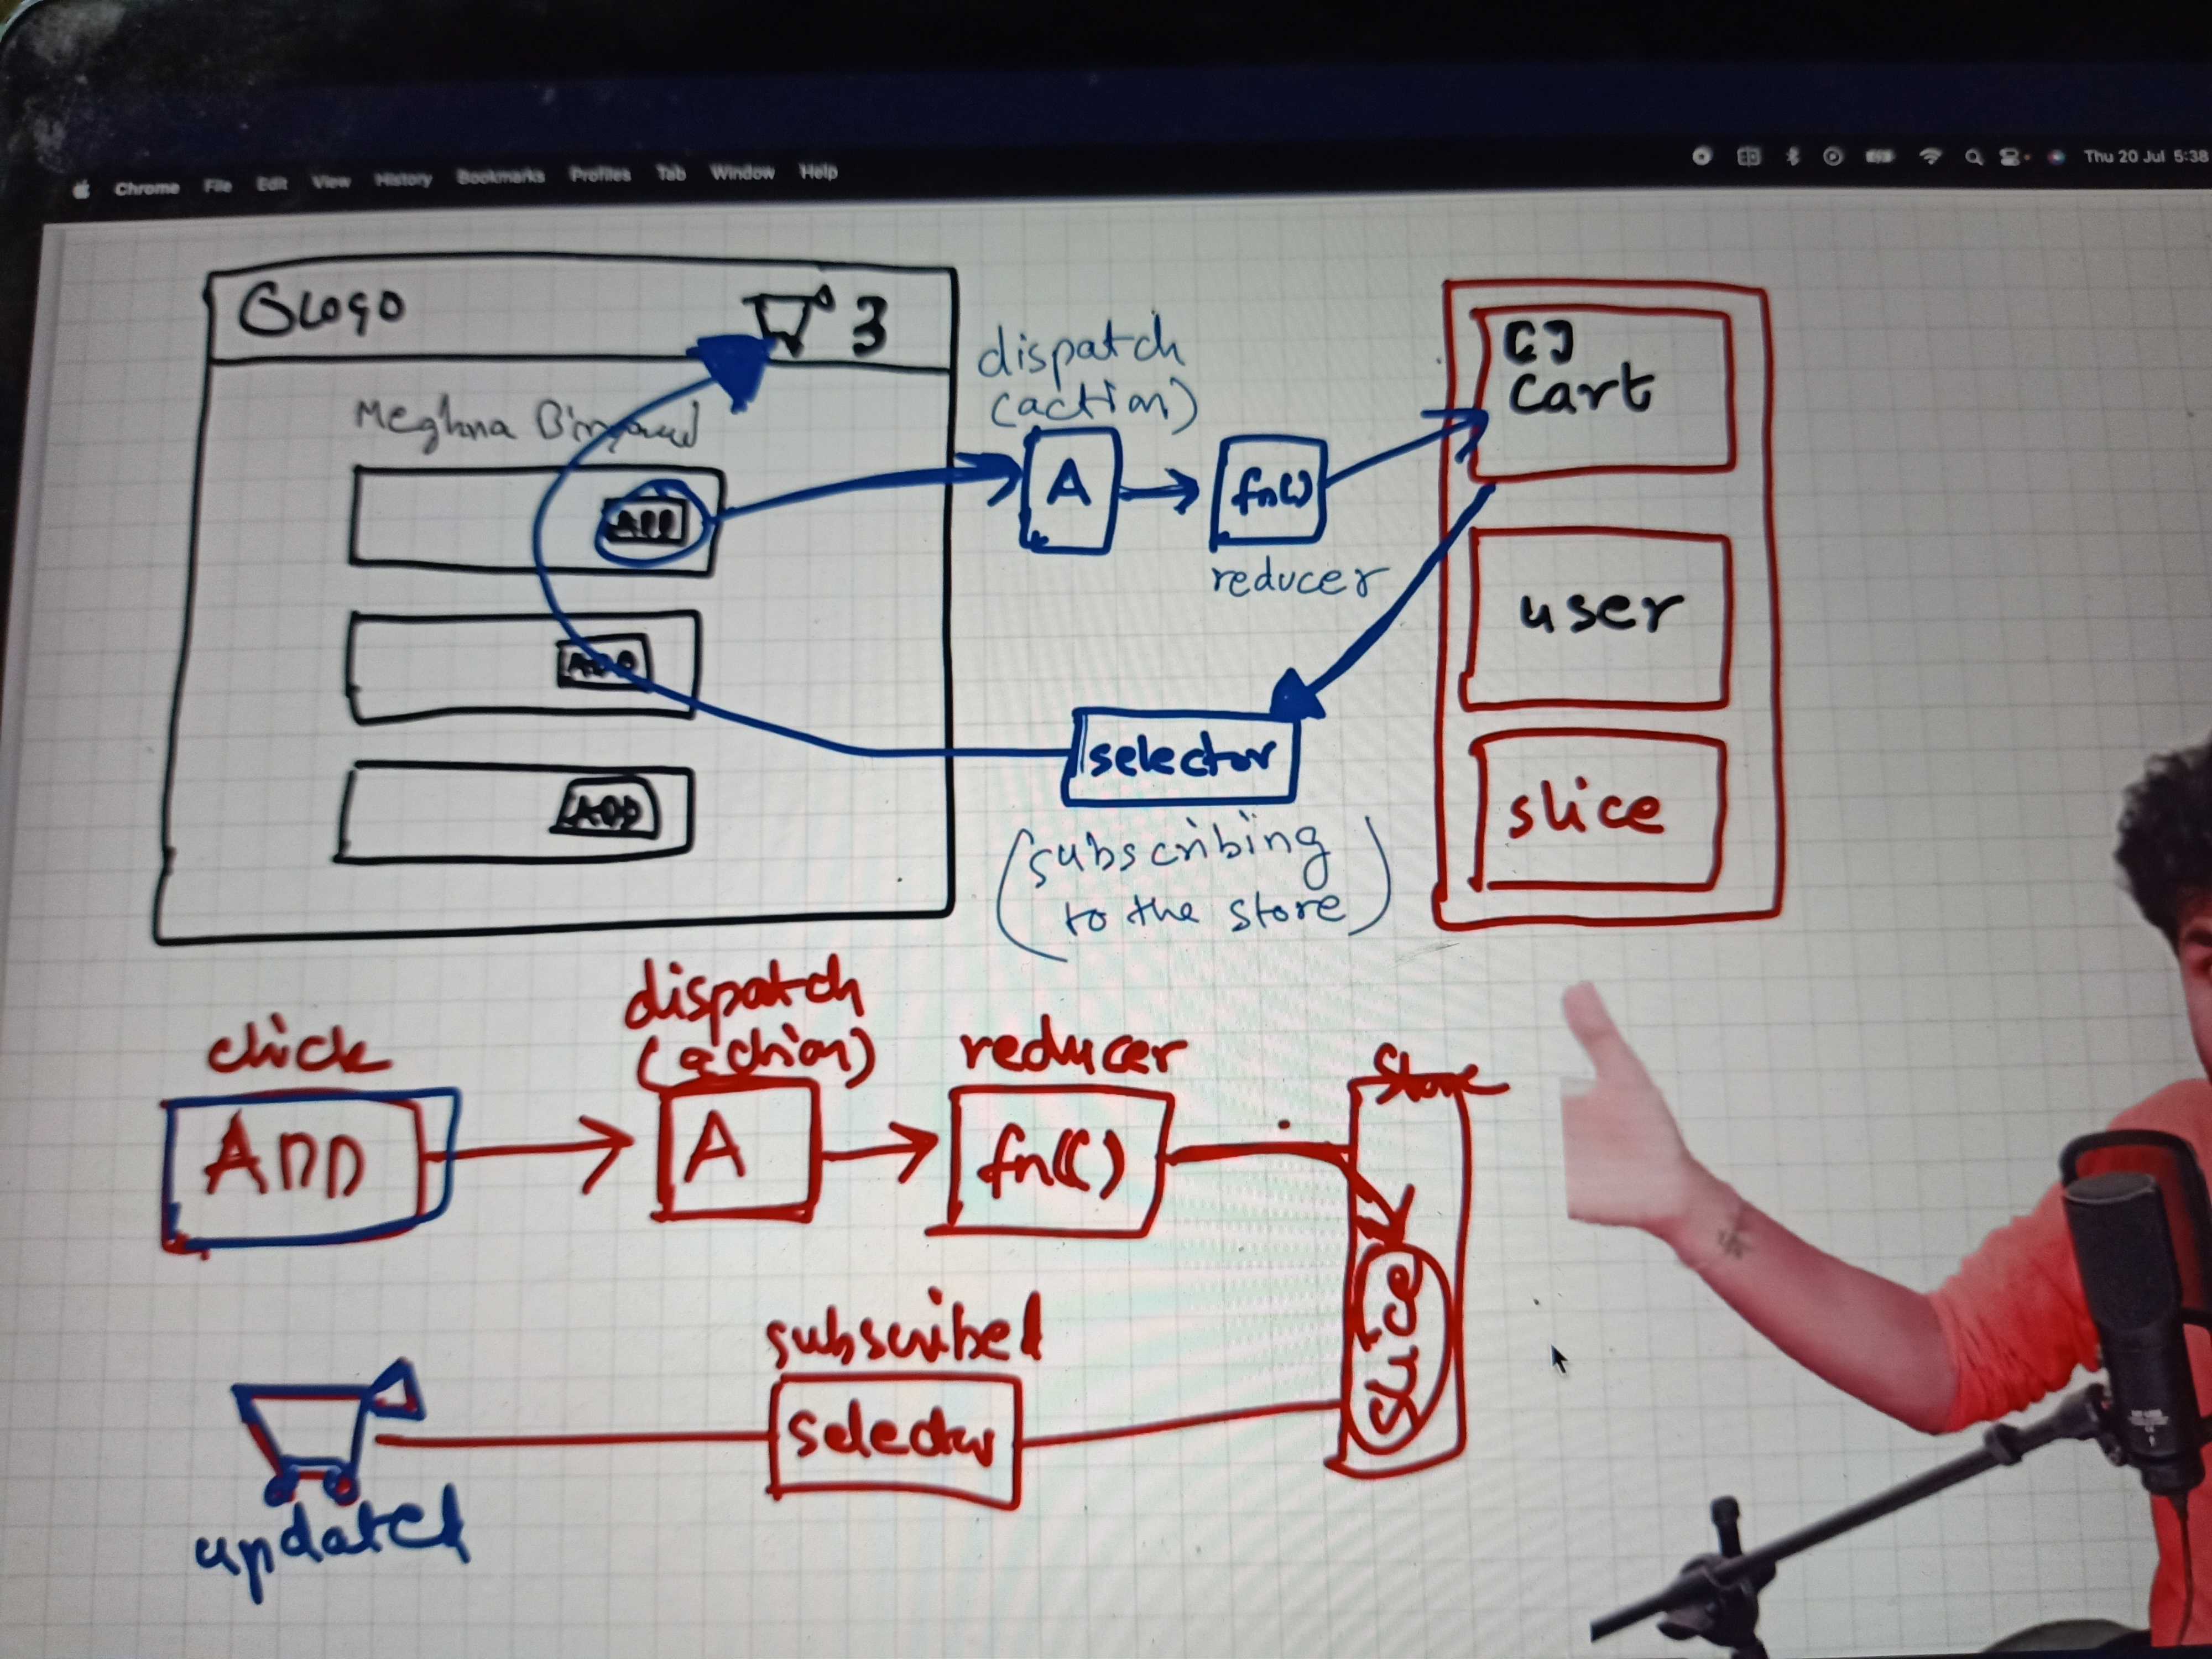 Chrome File Edit View History Bookmarks Profiles Tab Window Help
Thu 20 Jul 5:38
Logo
3
Meghna
ADD
ADD
ADD
dispatch
(action)
A
fn()
reducer
selector
(subscribing
to the store)
cart
user
slice
click
ADD
dispatch
(action)
A
reducer
fn()
Store
slice
subscribed
selector
updated